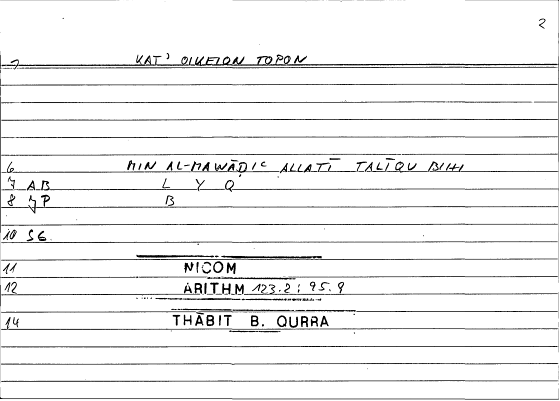 2
1 KAT' OIKEION TOPON
6 MIN AL-MAWĀDIʿ ALLATĪ TALĪQU BIHI
7 AB L Y Q
8 JP B
10 SG
11 NICOM
12 ARITHM 123.2; 95.9
14 THĀBIT B. QURRA